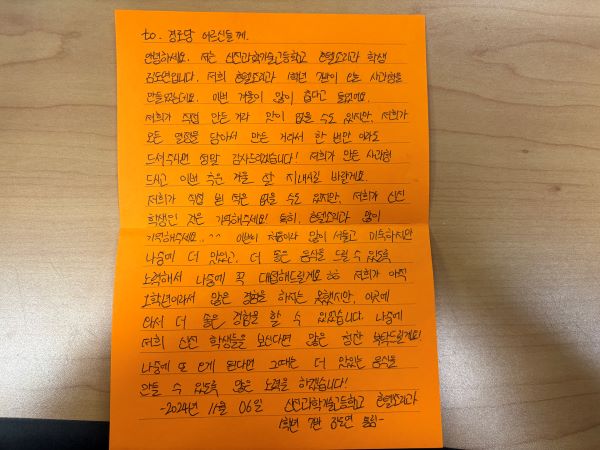 to. 경로당 어르신들께.
안녕하세요. 저는 신진과학기술고등학교 호텔조리과 학생
김도연입니다. 저희 호텔조리과 1학년 7반이 만든 사라형을
만들었는데요. 이번 겨울이 많이 춥다고 들었어요.
저희가 직접 만든거라 맛이 없을 수도 있지만, 저희가
모든 열정을 담아서 만든 거라서 한 번만 이라도
드셔주시면 정말 감사드리겠습니다! 저희가 만든
드시고 이번 추운 겨울 잘 지내시길 바랄게요.
저희가 직접 될 적은 없을 수도 있지만, 저희가 신진
학생인 것은 기억해주세요! 특히, 호텔조리과 많이
기억해주세요..^^ 이번이 처음이라 많이 서툴고 미숙하지만
나중에 더 맛있고, 더 좋은 음식을 드릴 수 있도록
노력해서 나중에 꼭 대접해드릴게요 저희가 아직
1학년이라서 많은 경험을 하지는 못했지만, 이곳에
와서 더 좋은 경험을 할 수 있었습니다. 나중에
저희 신진 학생들을 보신다면 많은 칭찬 부탁드릴게요!
나중에 또 오게 된다면 그때는 더 맛있는 음식을
만들 수 있도록 많은 노력을 하겠습니다!
-2024년 11월 06일 신진과학기술고등학교 호텔조리과
1학년 7반 김도연 올림-